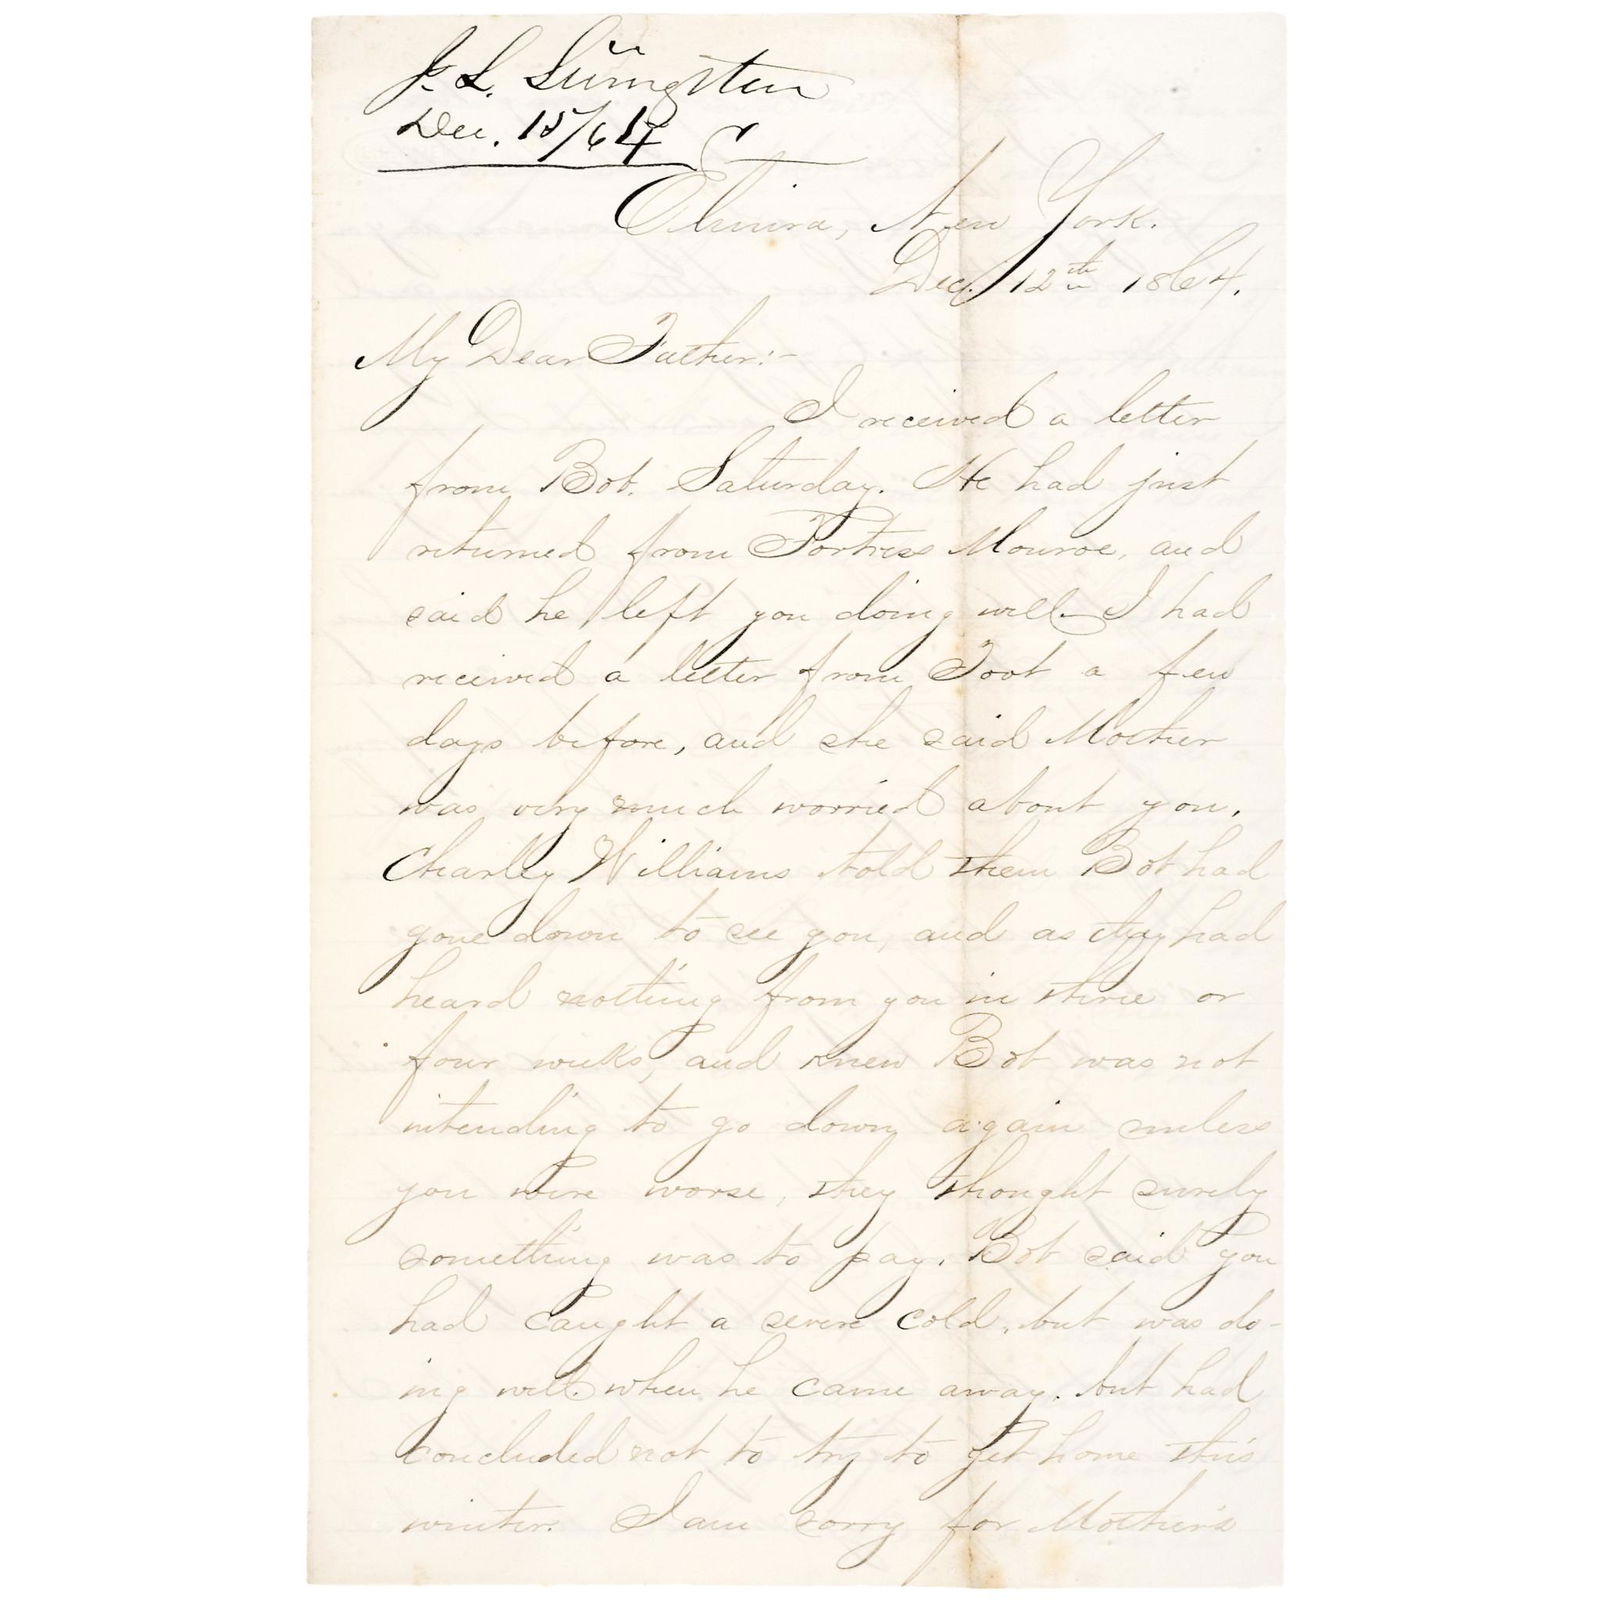 J. L. Livingston
Dec. 15/64
Elmira, New York.
Dec. 12th 1864.
My Dear Father:-
I received a letter
from Bob. Saturday. He had just
returned from Fortress Monroe, and
said he left you doing well. I had
received a letter from Toot a few
days before, and she said Mother
was very much worried about you.
Charley Williams told them Bob had
gone down to see you, and as they had
heard nothing from you in three or
four weeks, and knew Bob was not
intending to go down again unless
you were worse, they thought surely
something was to pay. Bob said you
had caught a severe cold, but was do-
ing well when he came away. but had
concluded not to try to get home this
winter. I am sorry for Mother's